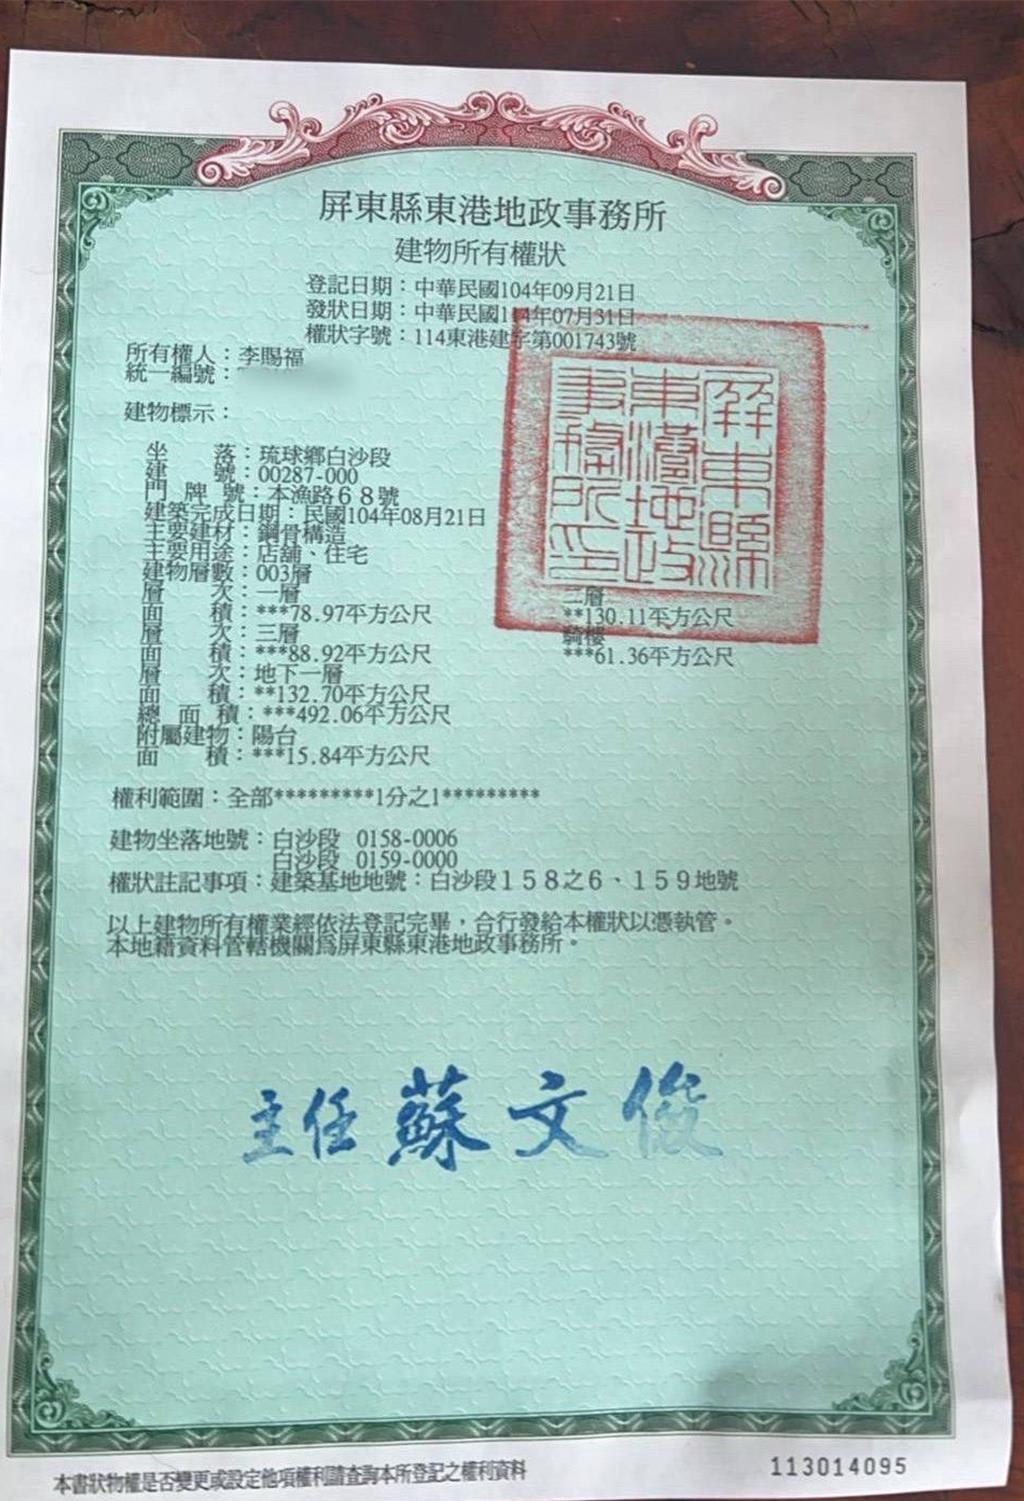 屏東縣東港地政事務所
建物所有權狀
登記日期：中華民國104年09月21日
發狀日期：中華民國114年07月31日
權狀字號：114東港建字第001743號
所有權人：李賜福
統一編號：
屏東縣
東港地政
事務所印
建物標示：
坐落：琉球鄉白沙段
建號：00287-000
門牌號：本漁路６８號
建築完成日期：民國104年08月21日
主要建材：鋼骨構造
主要用途：店舖、住宅
建物層數：003層
層次：一層 二層
面積：***78.97平方公尺 **130.11平方公尺
層次：三層 騎樓
面積：***88.92平方公尺 ***61.36平方公尺
層次：地下一層
面積：**132.70平方公尺
總面積：***492.06平方公尺
附屬建物：陽台
面積：***15.84平方公尺
權利範圍：全部*********1分之1*********
建物坐落地號：白沙段 0158-0006
白沙段 0159-0000
權狀註記事項：建築基地地號：白沙段１５８之６、１５９地號
以上建物所有權業經依法登記完畢，合行發給本權狀以憑執管。
本地籍資料管轄機關為屏東縣東港地政事務所。
主任 蘇文俊
本書狀物權是否變更或設定他項權利請查詢本所登記之權利資料
113014095